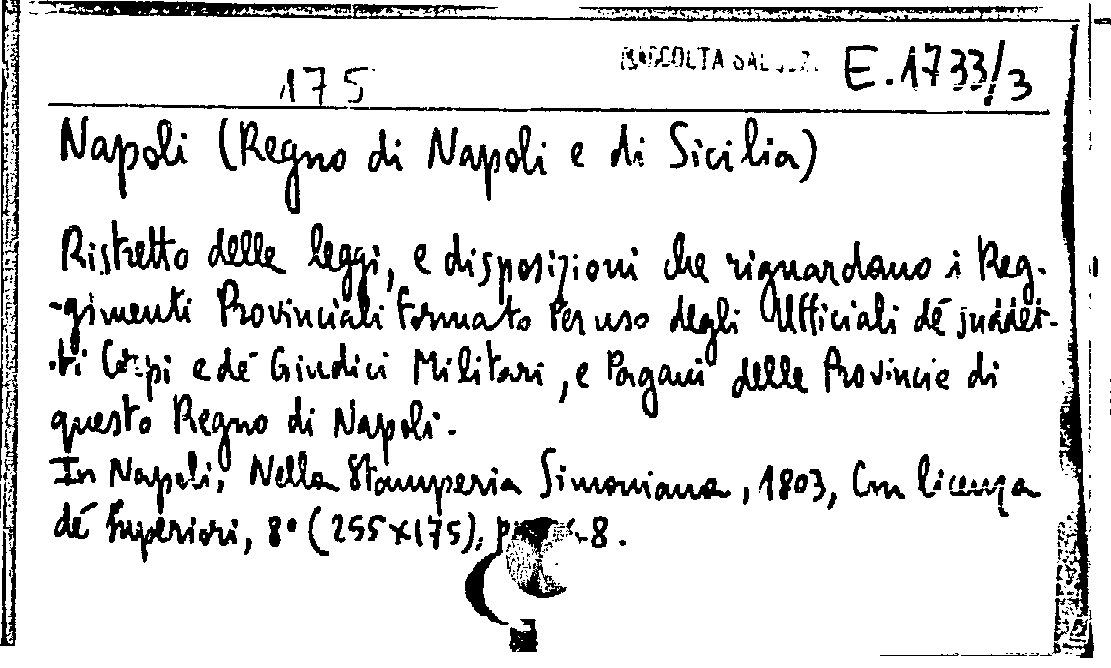 RACCOLTA E.1733/3
175
Napoli (Regno di Napoli e di Sicilia)
Ristretto delle leggi, e disposizioni che riguardano i Reg-
-gimenti Provinciali Formato Per uso degli Ufficiali de' suddet-
-ti Corpi e de' Giudici Militari, e Pagani delle Provincie di
questo Regno di Napoli.
In Napoli, Nella Stamperia Simoniana, 1803, Con licenza
de' Superiori, 8° (255x175), 8.